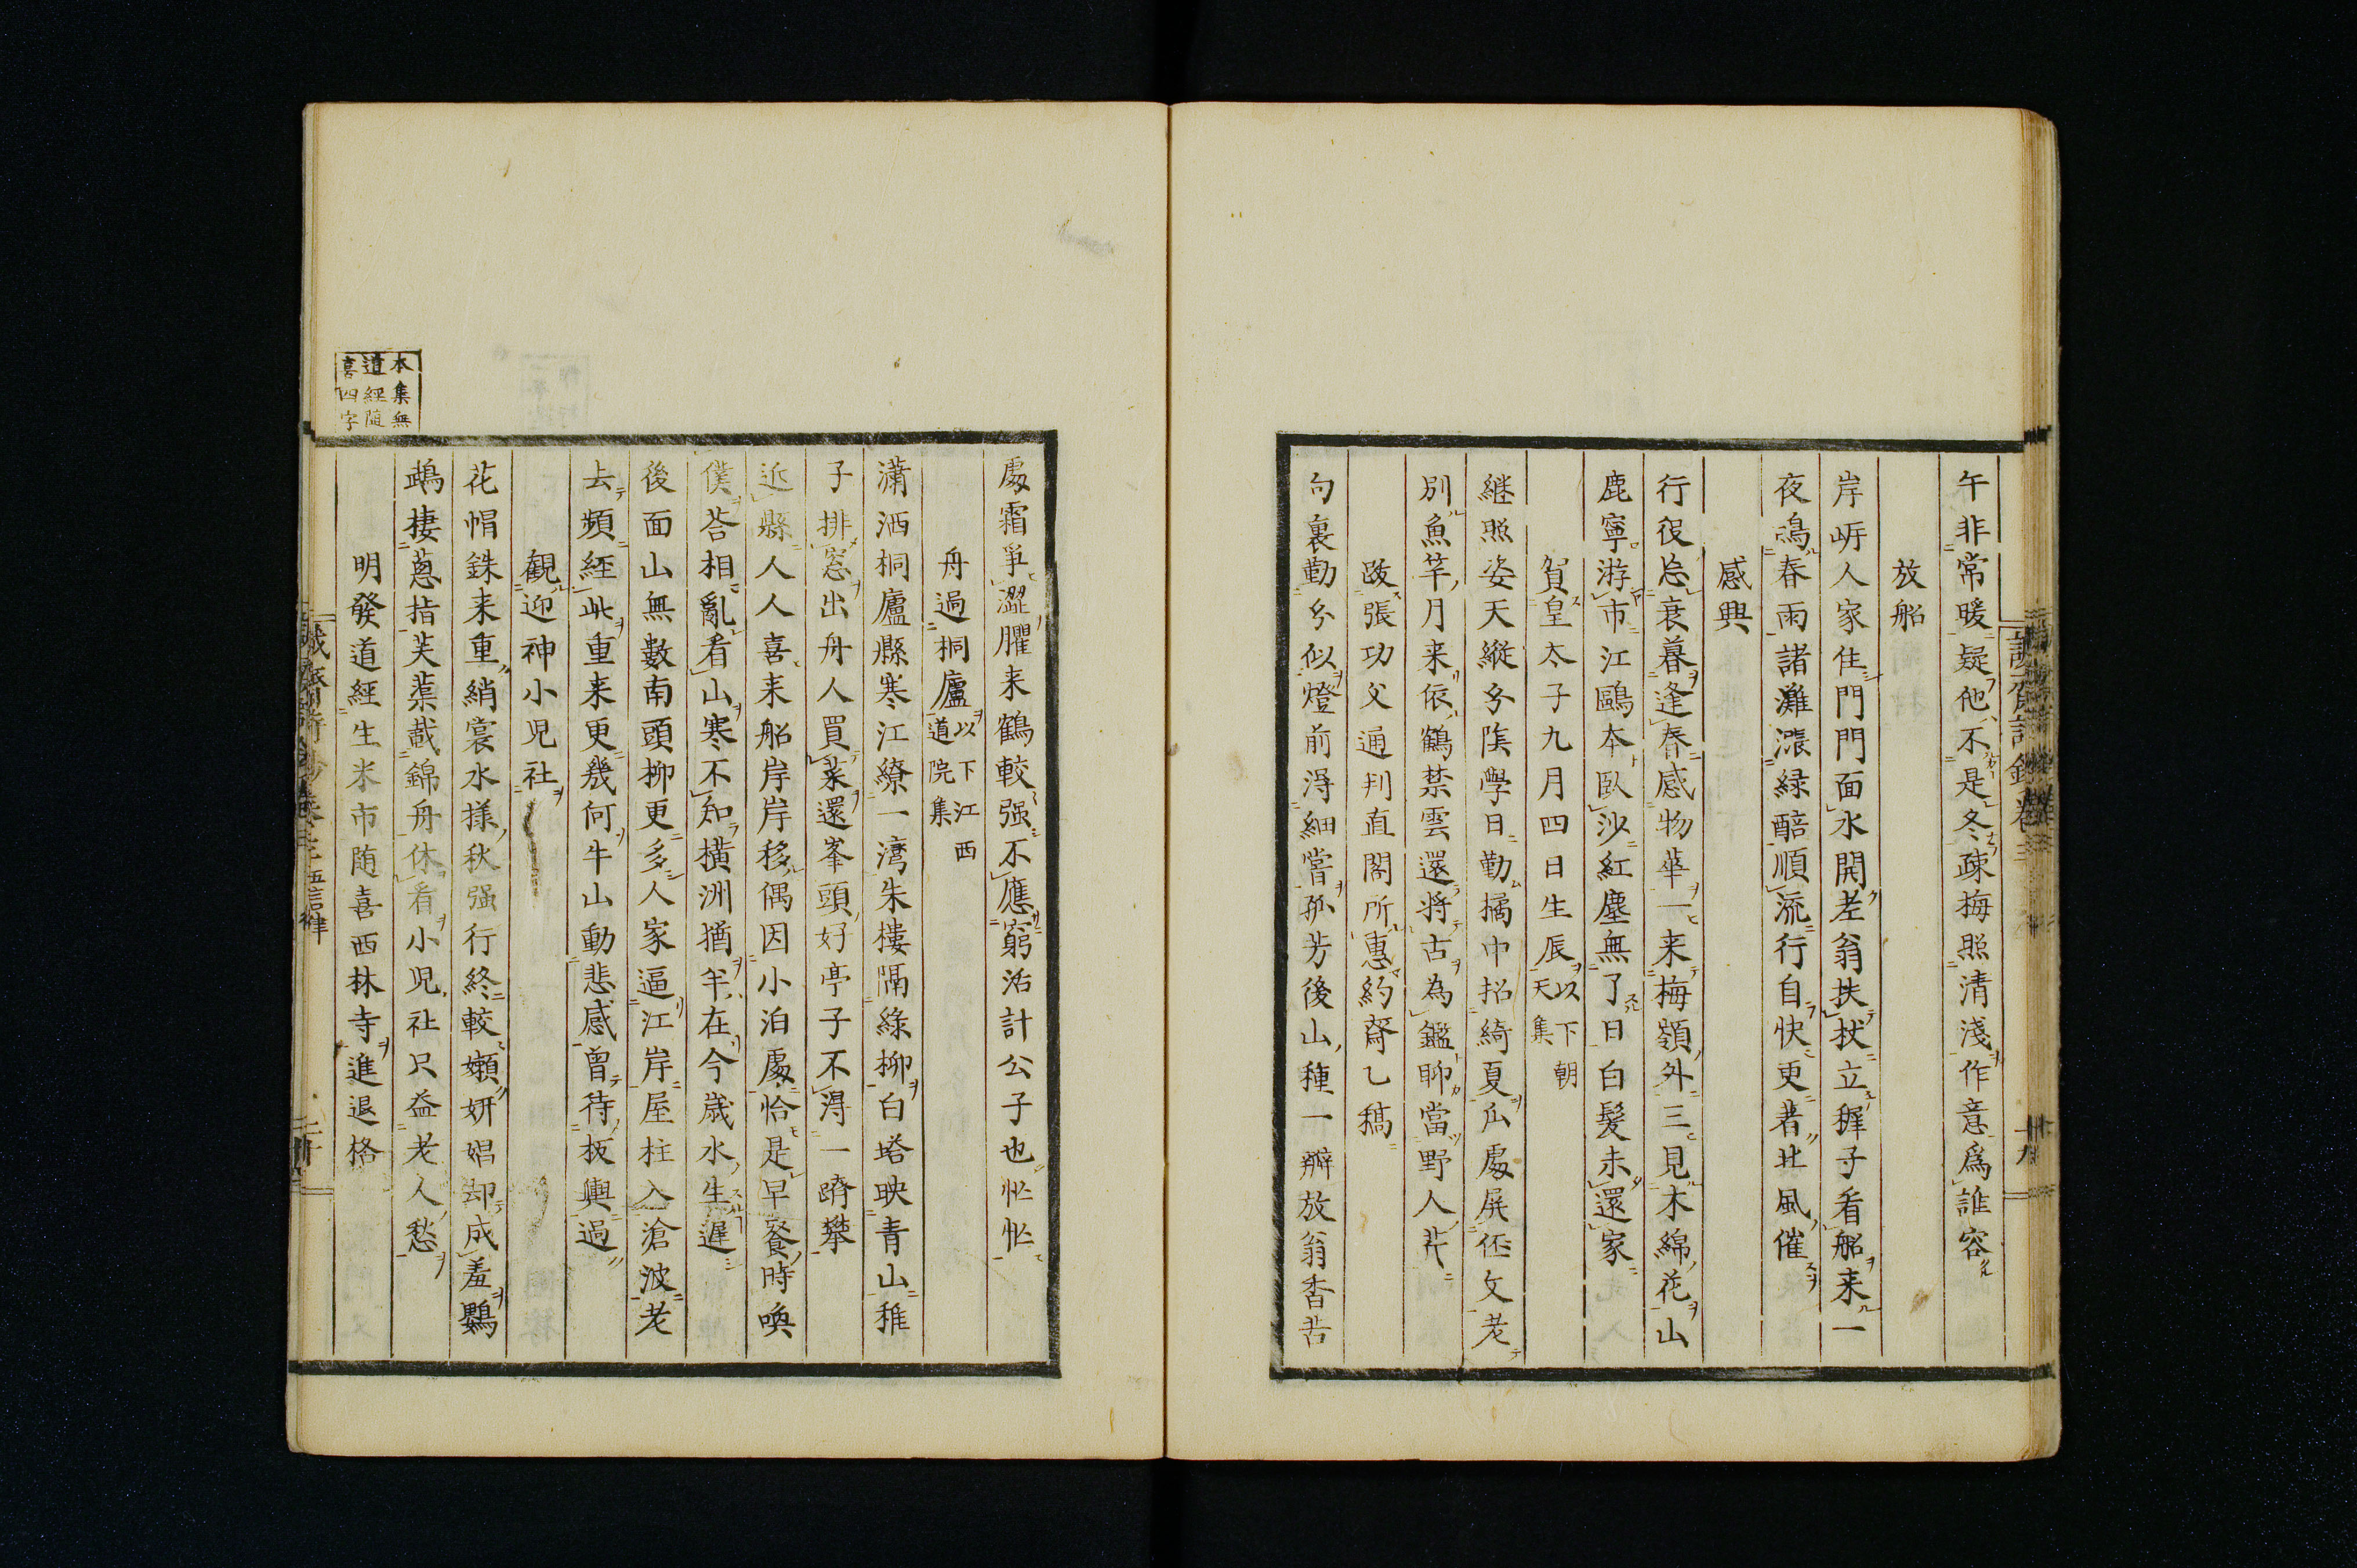 午非常暖疑他不是冬疎梅照清淺作意爲誰容
放船
岸㟁人家住門門面水開差翁扶杖立穉子看船来一
夜鳴春雨諸灘漲緑醅順流行自快更著北風催
感興
行役怱衰暮逢春感物華一来梅嶺外三見木綿花山
鹿寧游市江鷗本臥沙紅塵無了日白髮未還家
賀皇太子九月四日生辰以下朝
天集
継照姿天縦分陰學日勤橘中招綺夏瓜處屏伾文老
別魚竿月来依鶴禁雲還将古為鑑聊當野人芹
跋張功父通判直閣所惠約齋乙稿
句裏勤分似燈前淂細嘗孤芳後山種一瓣放翁香苦
處霜爭澀臞来鶴較强不應窮活計公子也忙忙
舟過桐廬以下江西
道院集
瀟洒桐廬縣寒江繚一湾朱樓隔綠柳白塔映青山稚
子排窓出舟人買菜還峯頭好亭子不淂一躋攀
近縣人人喜来船岸岸移偶因小泊處恰是早餐時喚
僕荅相亂看山寒不知橫洲猶半在今歲水生遲
後面山無數南頭柳更多人家逼江岸屋柱入滄波老
去頻經此重来更幾何牛山動悲感曾待板輿過
觀迎神小児社
花帽銖来重綃裳水様秋强行終較嬾妍娼却成羞鸚
鵡棲葱指芙蕖蔵錦舟休看小児社只益老人愁
明發道經生米市随喜西林寺進退格
本集無
道經随
喜四字